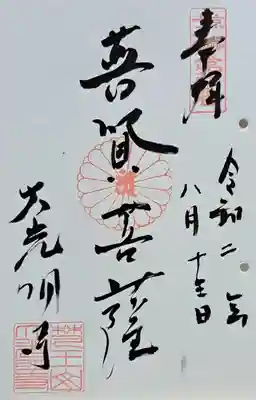 奉拝
令和二年
八月十五日
普賢菩薩
大光明寺